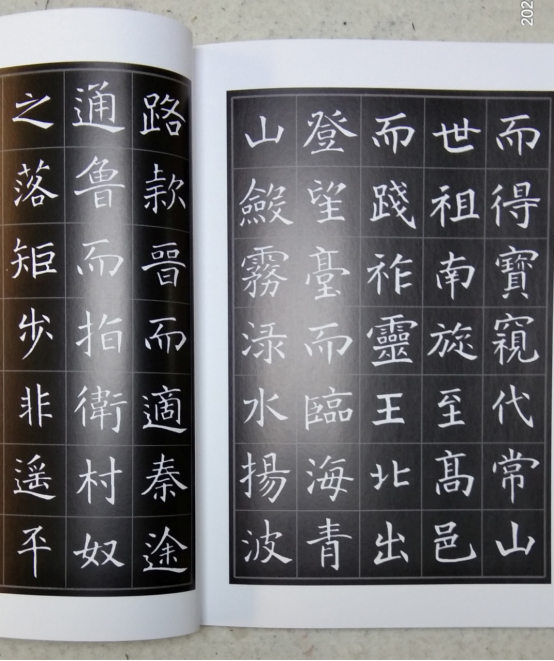 而得寶窺代常山
世祖南旋至髙邑
而踐祚靈王北出
登望臺而臨海青
山斂霧渌水揚波
路款晉而適秦途
通魯而指衛村奴
之落矩步非遥平
202